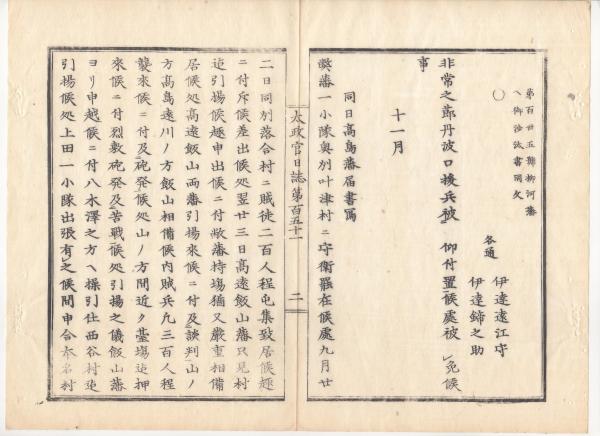 第百廿五號柳河藩
ヘ御沙汰書同文
○
各通
伊達遠江守
伊達鍗之助
非常之節丹波口援兵被　仰付置候處被　免候
事
十一月
同日高島藩届書寫
弊藩一小隊奥州叶津村ニ守衛罷在候處九月廿
太政官日誌第百五十一
二
二日同別落合村ニ賊徒二百人程屯集致居候趣
ニ付斥候差出候処翌廿三日高遠飯山藩只見村
迄引揚候趣申出候ニ付敝藩持塲猶又嚴重相備
居候処高遠飯山両藩引揚來候ニ付及談判山ノ
方高島遠川ノ方飯山相備候内賊兵凡三百人程
襲來候ニ付及砲發候処山ノ方間近ク臺塲迄押
來候ニ付烈敷砲發及苦戰候処引揚之儀飯山藩
ヨリ申越候ニ付八木澤之方ヘ操引仕西谷村迄
引揚候処上田一小隊出張有之候間申合布名村